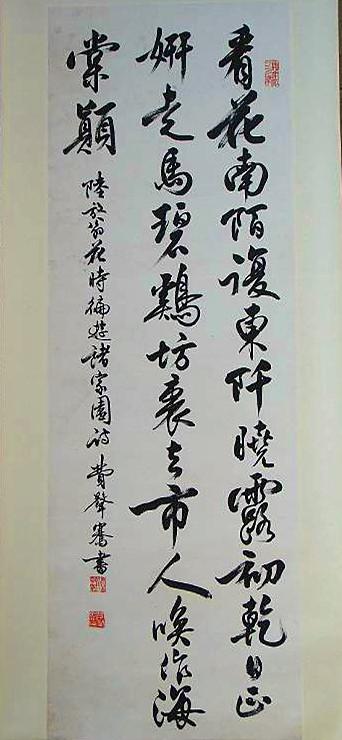 看花南陌復東阡曉露初乾日正
妍走馬碧鷄坊裏去市人喚作海
棠顛
陸放翁花時徧遊諸家園詩 費聲騫書